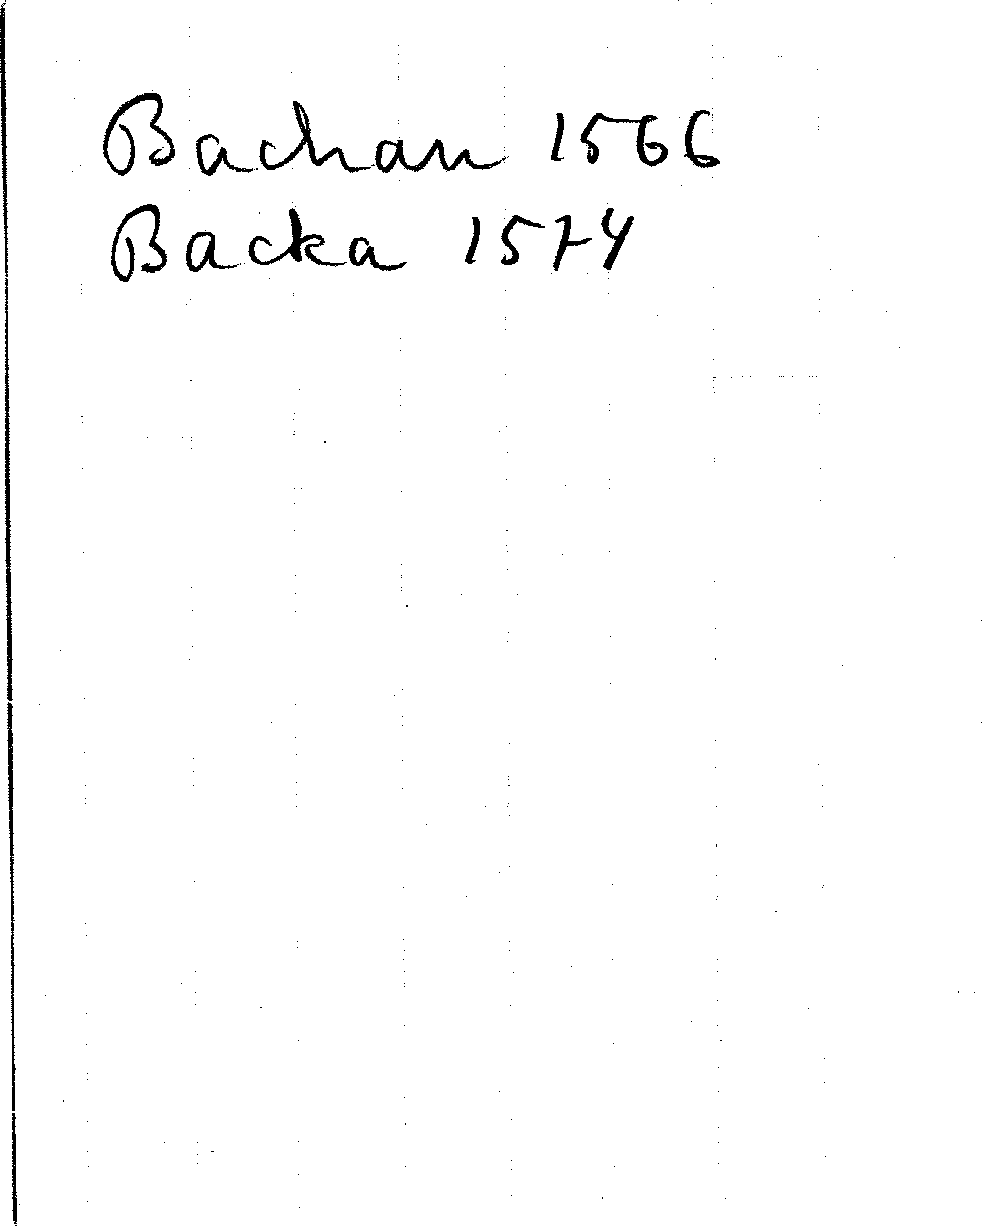 Bachan 1566
Backa 1574